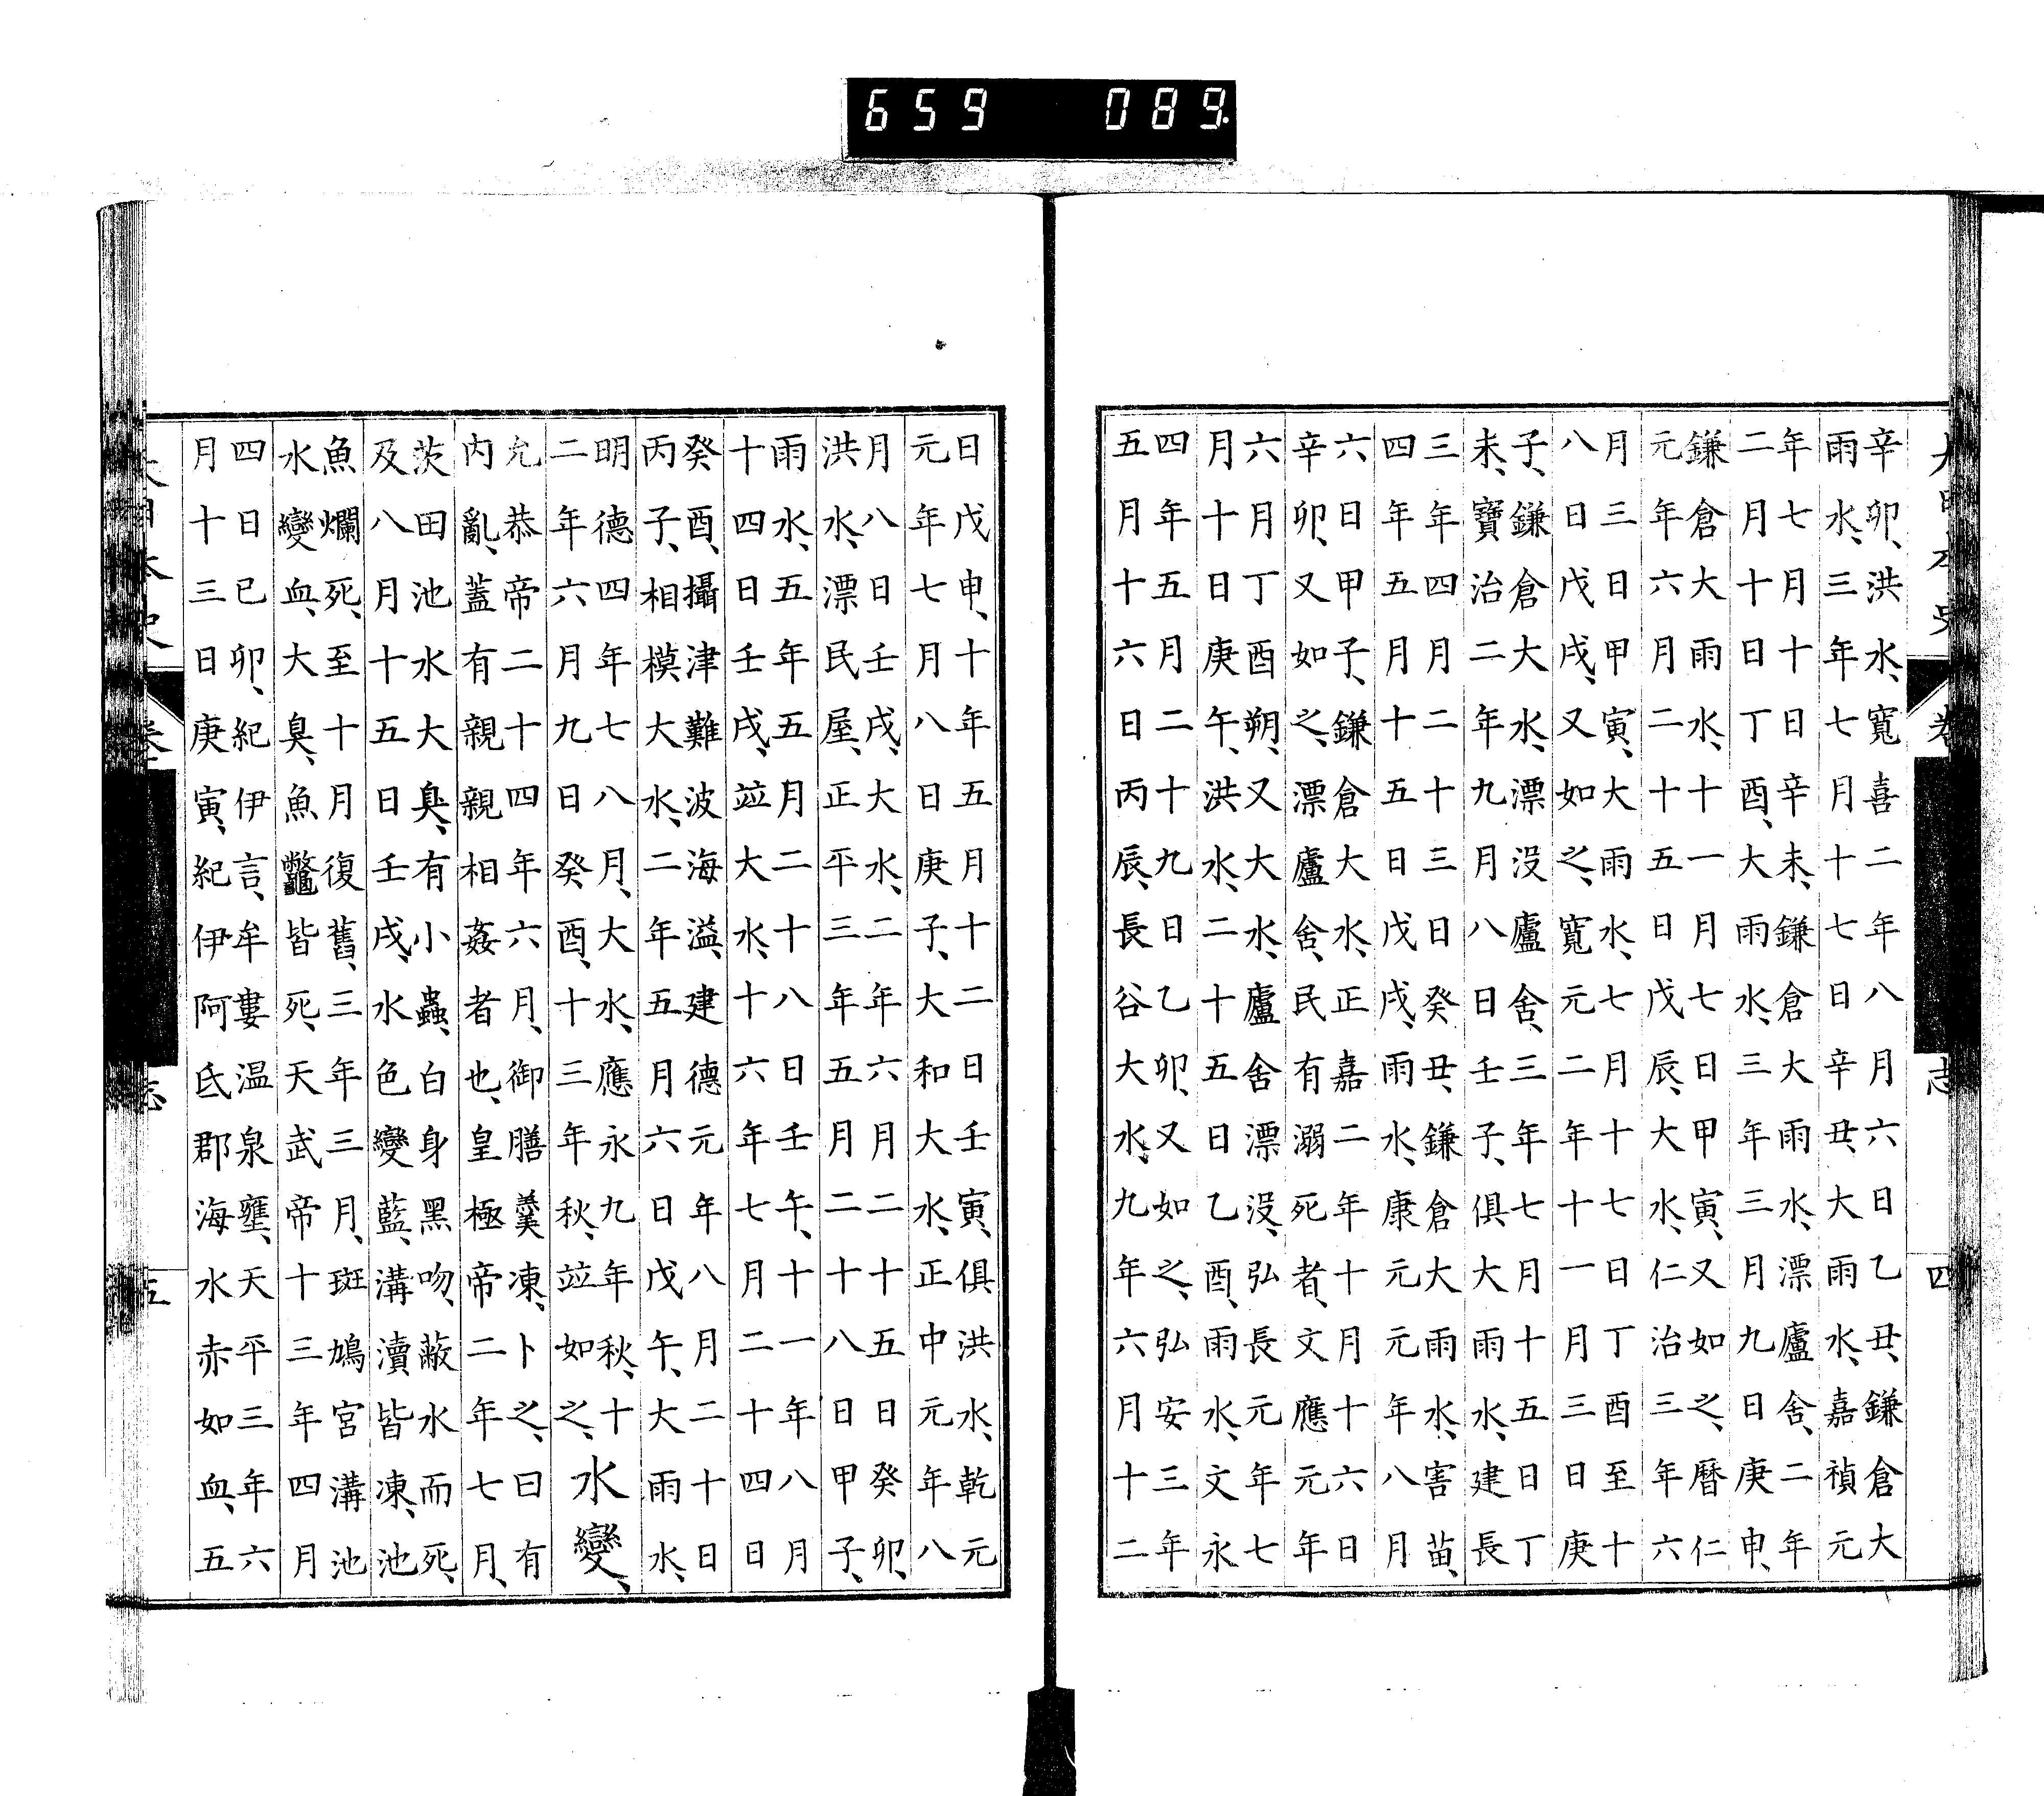 659 089
大日本史 卷 志 四
辛卯、洪水、寬喜二年八月六日乙丑、鎌倉大
雨水、三年七月十七日辛丑、大雨水、嘉禎元
年七月十日辛未、鎌倉大雨水、漂廬舍、二年
二月十日丁酉、大雨水、三年三月九日庚申、
鎌倉大雨水、十一月七日甲寅、又如之、曆仁
元年六月二十五日戊辰、大水、仁治三年六
月三日甲寅、大雨水、七月十七日丁酉至十
八日戊戌、又如之、寬元二年十一月三日庚
子、鎌倉大水、漂没廬舍、三年七月十五日丁
未、寶治二年九月八日壬子、俱大雨水、建長
三年四月二十三日癸丑、鎌倉大雨水、害苗、
四年五月十五日戊戌、雨水、康元元年八月
六日甲子、鎌倉大水、正嘉二年十月十六日
辛卯、又如之、漂廬舍、民有溺死者、文應元年
六月丁酉朔、又大水、廬舍漂没、弘長元年七
月十日庚午、洪水、二十五日乙酉、雨水、文永
四年五月二十九日乙卯、又如之、弘安三年
五月十六日丙辰、長谷大水、九年六月十二
日戊申、十年五月十二日壬寅、俱洪水、乾元
元年七月八日庚子、大和大水、正中元年八
月八日壬戌、大水、二年六月二十五日癸卯、
洪水、漂民屋、正平三年五月二十八日甲子、
雨水、五年五月二十八日壬午、十一年八月
十四日壬戌、竝大水、十六年七月二十四日
癸酉、攝津難波海溢、建德元年八月二十日
丙子、相模大水、二年五月六日戊午、大雨水、
明德四年七八月、大水、應永九年秋、十
二年六月九日癸酉、十三年秋、竝如之、
水變、
允恭帝二十四年六月、御膳羹凍、卜之、曰有
內亂、蓋有親親相姦者也、皇極帝二年七月、
茨田池水大臭、有小蟲、白身黑吻、蔽水而死、
及八月十五日壬戌、水色變藍、溝瀆皆凍、池
魚爛死、至十月復舊、三年三月、斑鳩宮溝池
水變血、大臭、魚鼈皆死、天武帝十三年四月
四日己卯、紀伊言、牟婁温泉壅、天平三年六
月十三日庚寅、紀伊阿氐郡海水赤如血、五
大日本史 卷 志 五